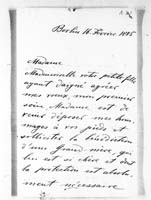 Berlin 16 Février 1885
Madame
Mademoiselle votre petite fille
ayant daigné agréer
mes vœux, mon premier
soin Madame est de
venir déposer mes hom
mages à vos pieds et
solliciter la bénédiction
d'une Grand mère qui
lui est si chère et dont
la protection est absolu
ment nécessaire